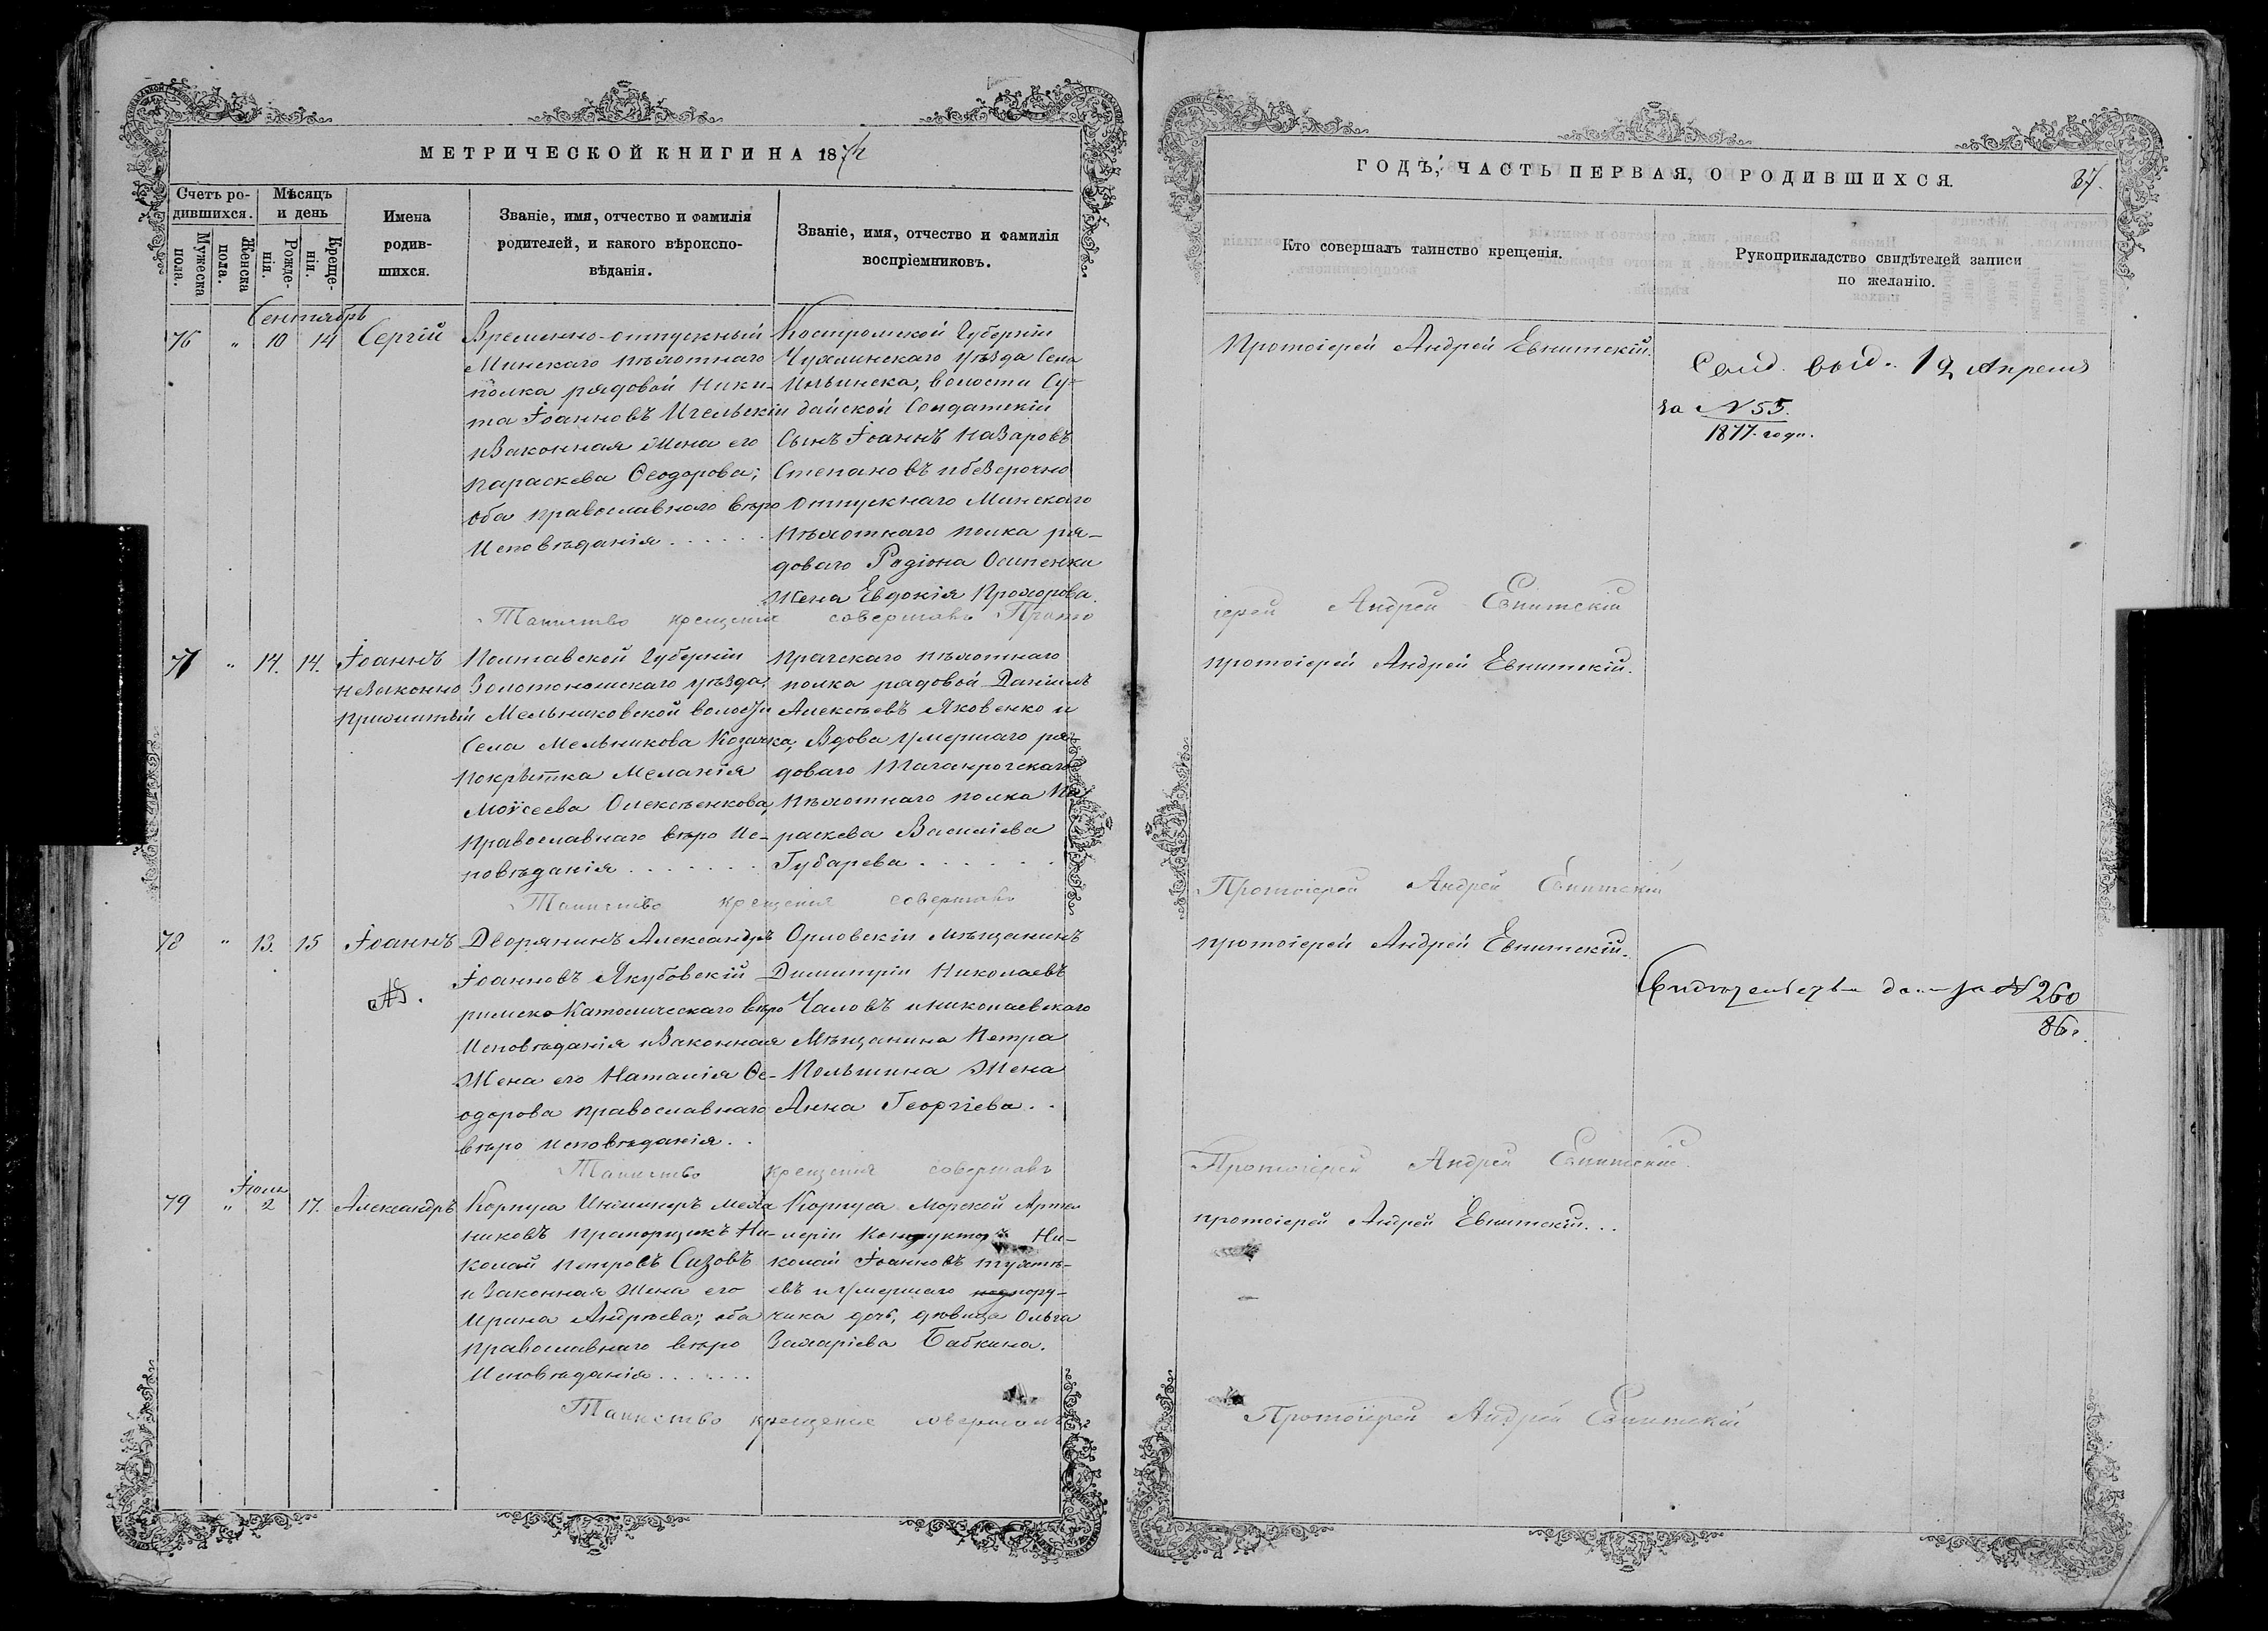 МЕТРИЧЕСКОЙ КНИГИ НА 1874
Счетъ родившихся.
Мужеска пола.
Женска пола.
Мѣсяцъ и день
Рожденія.
Крещенія.
Имена родившихся.
Званіе, имя, отчество и фамилія родителей, и какого вѣроисповѣданія.
Званіе, имя, отчество и фамилія воспріемниковъ.
Сентябрь
76 " 10 14 Сергій
Временно-отпускный
Минскаго пѣхотнаго
полка рядовой Ники-
та Іоанновъ Игельскій
и законная жена его
Параскева Ѳеодорова;
оба православнаго вѣро
исповѣданія . . . . .
Костромской Губерніи
Чухлинскаго уѣзда Села
Ильинска, волости Су-
дайской Солдатскій
Сынъ Іоаннъ Назаровъ
Степановъ и безсрочно
отпускнаго Минскаго
пѣхотнаго полка ря-
доваго Родіона Осипенки
жена Евдокія Прохорова.
Таинство крещенія совершалъ Прото
77 " 14. 14. Іоаннъ
незаконно
прижитый
Полтавской Губерніи
Золотоношскаго уѣзда,
Мельниковской волости
Села Мельникова Козачка,
покрытка Меланія
Моѵсеева Олексѣенкова,
православнаго вѣро ис-
повѣданія . . . . . . .
Прагскаго пѣхотнаго
полка рядовой Даніилъ
Алексѣевъ Яковенко и
вдова умершаго ря-
доваго Таганрогскаго
пѣхотнаго полка Па-
раскева Василіева
Губарева . . . . . .
Таинство крещенія совершалъ
78 " 13. 15 Іоаннъ
Дворянинъ Александръ
Іоанновъ Якубовскій
римско-Католическаго вѣро
исповѣданія и законная
жена его Наталія Ѳе-
одорова православнаго
вѣро исповѣданія . .
Орловскій мѣщанинъ
Димитрій Николаевъ
Чаловъ и николаевскаго
мѣщанина Петра
Польшина жена
Анна Георгіева. .
Таинство крещенія совершалъ
Іюль
79 " 2 17. Александръ
Корпуса Инженеръ меха
никовъ прапорщикъ Ни-
колай Петровъ Сизовъ
и законная жена его
Ирина Андреева; оба
православнаго вѣро
исповѣданія . . . . . . .
Корпуса Морской Артил
леріи Кондукторъ Ни-
колай Іоанновъ Тухтѣ-
евъ и умершаго подпору-
чика дочь, дѣвица Ольга
Захаріева Бабкина.
Таинство крещенія совершалъ
ГОДЪ, ЧАСТЬ ПЕРВАЯ, О РОДИВШИХСЯ.
37.
Кто совершалъ таинство крещенія.
Рукоприкладство свидѣтелей записи по желанію.
Протоіерей Андрей Евнитскій.
Свид. выд. 12 Апреля
за № 55.
1877 года.
іерей Андрей Евнитскій
Протоіерей Андрей Евнитскій.
Протоіерей Андрей Евнитскій
Протоіерей Андрей Евнитскій.
Свидѣтельство за № 260
86 г.
Протоіерей Андрей Евнитскій.
Протоіерей Андрей Евнитскій. . .
Протоіерей Андрей Евнитскій